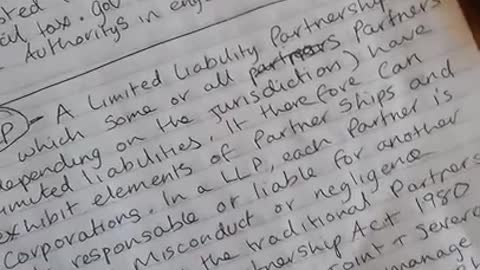 tax.gov
Authoritys in eng
P - A Limited Liability Partnership
which some or all partners Partners
depending on the jurisdiction) have
limited liabilities. It therefore can
exhibit elements of Partner ships and
Corporations. In a LLP, each Partner is
responsible or liable for another
Misconduct or negligence
the traditional Partners
nership Act 1980
Joint + Severa
manage